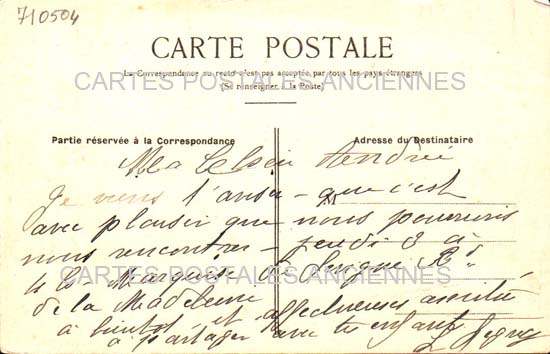 710504
CARTE POSTALE
La Correspondance au recto n'est pas acceptée par tous les pays étrangers
(Se renseigner à la Poste)
CARTES POSTALES ANCIENNES
Partie réservée à la Correspondance
Adresse du Destinataire
Ma
Je viens t'aviser que c'est
avec plaisir que nous pourrions
nous rencontrer jeudi 3 à
la Marquise de
CARTES POSTALES ANCIENNES
de la Madeleine
à bientôt et affectueuses amitiés
à partager avec tes enfants